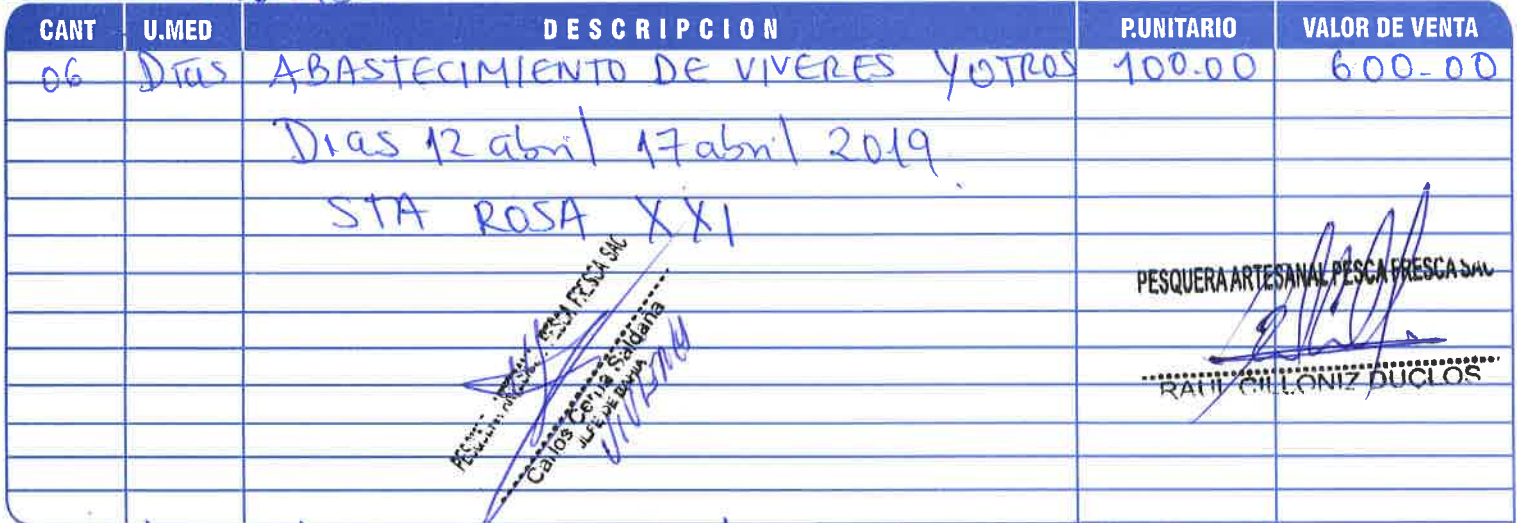 CANT U.MED DESCRIPCION P.UNITARIO VALOR DE VENTA
06 Dias ABASTECIMIENTO DE VIVERES Y OTROS 100.00 600-00
Dias 12 abril 17 abril 2019
STA ROSA XXI
PESCA FRESCA SAC
Carlos Cerna Saldaña
JEFE DE BAHIA
VIVERES
PESQUERA ARTESANAL PESCA FRESCA SAC
RAUL GILLONIZ DUCLOS